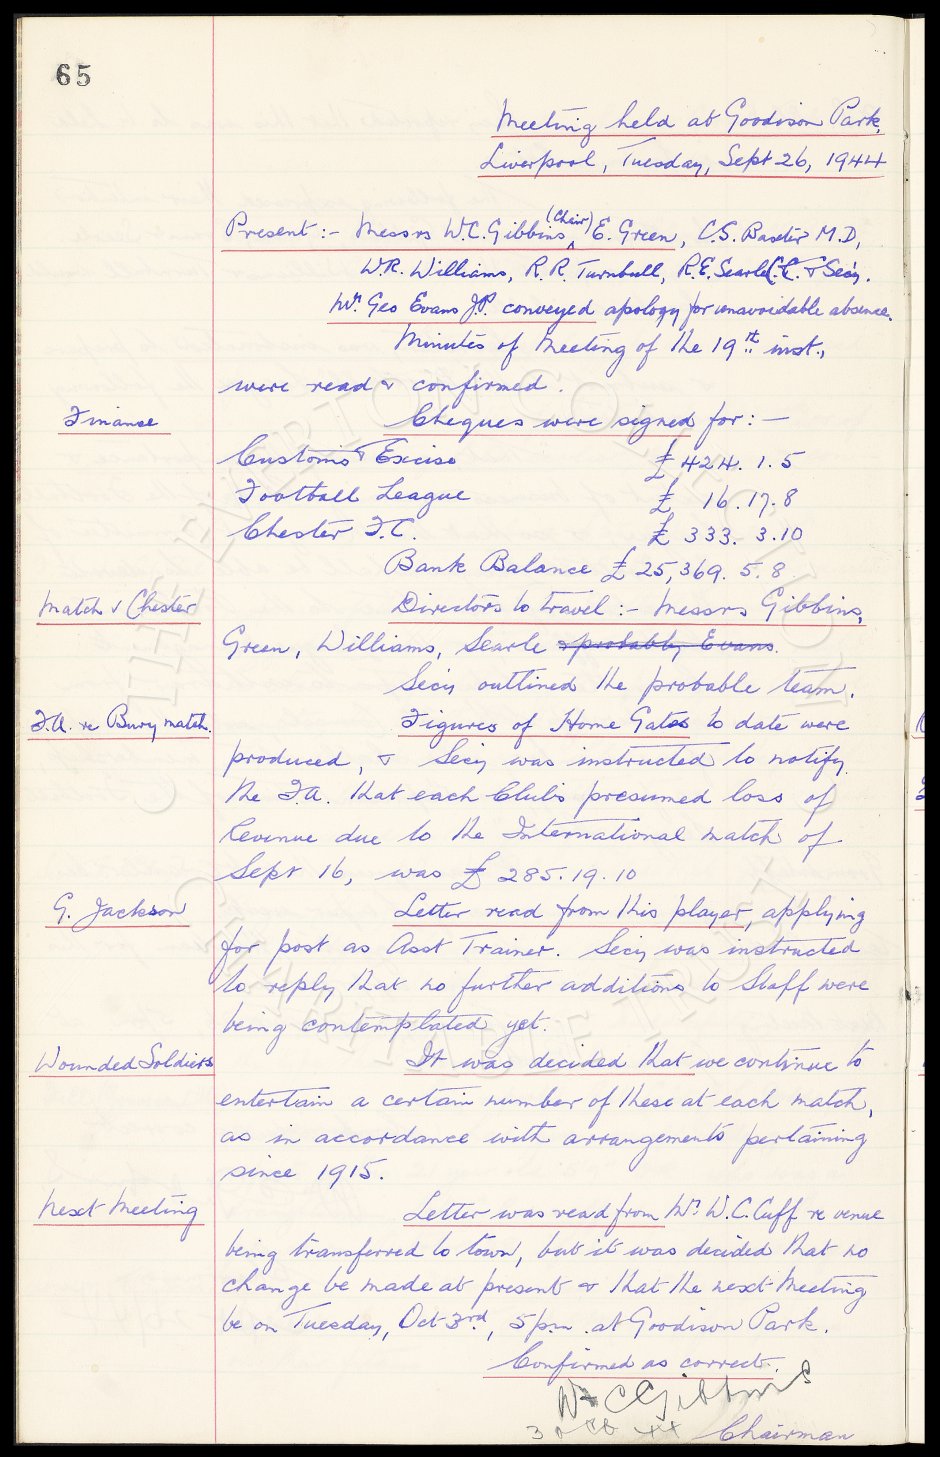 65
Meeting held at Goodison Park,
Liverpool, Tuesday, Sept 26, 1944
Present :- Messrs W.C. Gibbins (Chair) E. Green, C.S. Baxter M.D,
W.R. Williams, R.R. Turnbull, R.E. Searle & Secy.
Mr. Geo Evans J.P. conveyed apology for unavoidable absence.
Minutes of Meeting of the 19th inst.,
were read & confirmed.
Finance
Cheques were signed for: —
Customs & Excise £ 424. 1. 5
Football League £ 16. 17. 8
Chester F.C. £ 333. 3. 10
Bank Balance £ 25,369. 5. 8
Match v Chester
Directors to travel :- Messrs Gibbins,
Green, Williams, Searle & probably Evans.
Secy outlined the probable team.
F.A. re Bury match.
Figures of Home Gates to date were
produced, & Secy was instructed to notify
the F.A. that each Club's presumed loss of
Revenue due to the International match of
Sept 16, was £ 285. 19. 10
G. Jackson
Letter read from this player, applying
for post as Asst Trainer. Secy was instructed
to reply that no further additions to Staff were
being contemplated yet.
Wounded Soldiers
It was decided that we continue to
entertain a certain number of these at each match,
as in accordance with arrangements pertaining
since 1915.
Next Meeting
Letter was read from Mr. W.C. Cuff re venue
being transferred to town, but it was decided that no
change be made at present & that the next Meeting
be on Tuesday, Oct 3rd, 5 p.m. at Goodison Park.
Confirmed as correct.
W C Gibbins
3 Oct 44 Chairman
THE EVERTON COLLECTION
CHARITABLE TRUST